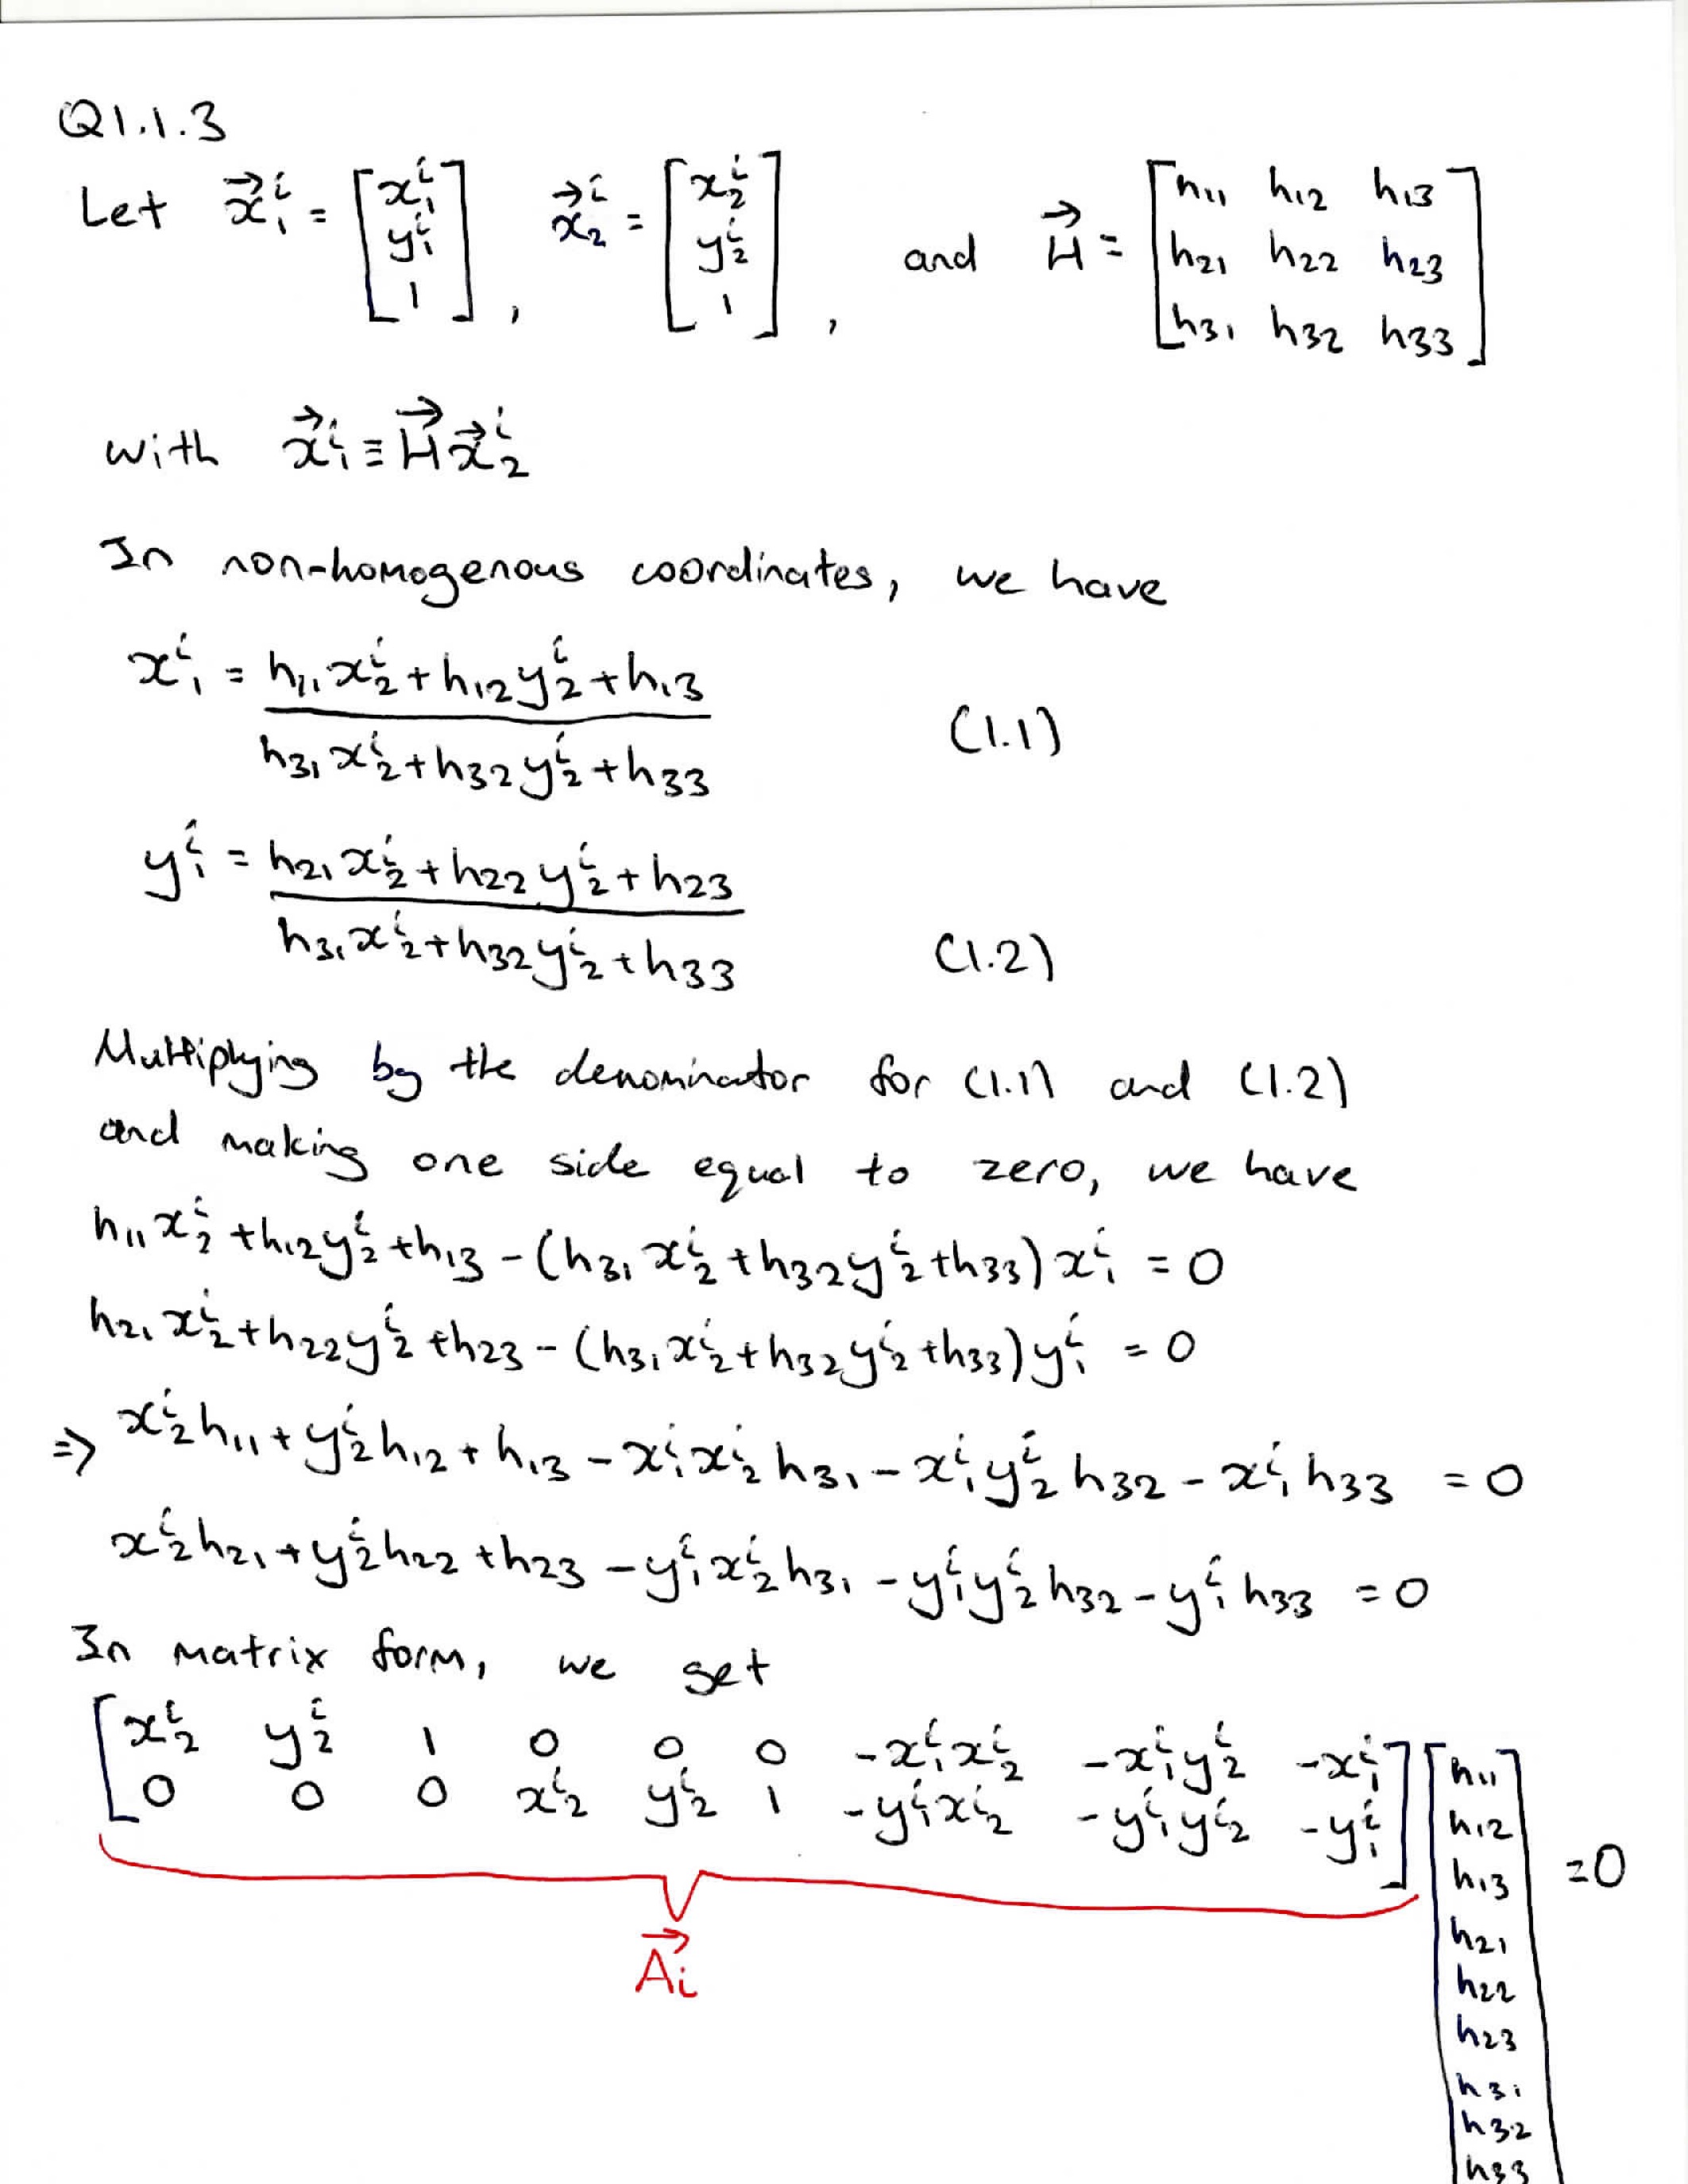 Q1.1.3
Let $\vec{x}_1^i = \begin{bmatrix} x_1^i \\ y_1^i \\ 1 \end{bmatrix}$, $\vec{x}_2^i = \begin{bmatrix} x_2^i \\ y_2^i \\ 1 \end{bmatrix}$, and $\vec{H} = \begin{bmatrix} h_{11} & h_{12} & h_{13} \\ h_{21} & h_{22} & h_{23} \\ h_{31} & h_{32} & h_{33} \end{bmatrix}$
with $\vec{x}_1^i \equiv \vec{H} \vec{x}_2^i$
In non-homogenous coordinates, we have
$x_1^i = \frac{h_{11} x_2^i + h_{12} y_2^i + h_{13}}{h_{31} x_2^i + h_{32} y_2^i + h_{33}}$ (1.1)
$y_1^i = \frac{h_{21} x_2^i + h_{22} y_2^i + h_{23}}{h_{31} x_2^i + h_{32} y_2^i + h_{33}}$ (1.2)
Multiplying by the denominator for (1.1) and (1.2)
and making one side equal to zero, we have
$h_{11} x_2^i + h_{12} y_2^i + h_{13} - (h_{31} x_2^i + h_{32} y_2^i + h_{33}) x_1^i = 0$
$h_{21} x_2^i + h_{22} y_2^i + h_{23} - (h_{31} x_2^i + h_{32} y_2^i + h_{33}) y_1^i = 0$
$\Rightarrow x_2^i h_{11} + y_2^i h_{12} + h_{13} - x_1^i x_2^i h_{31} - x_1^i y_2^i h_{32} - x_1^i h_{33} = 0$
$x_2^i h_{21} + y_2^i h_{22} + h_{23} - y_1^i x_2^i h_{31} - y_1^i y_2^i h_{32} - y_1^i h_{33} = 0$
In matrix form, we get
$\begin{bmatrix} x_2^i & y_2^i & 1 & 0 & 0 & 0 & -x_1^i x_2^i & -x_1^i y_2^i & -x_1^i \\ 0 & 0 & 0 & x_2^i & y_2^i & 1 & -y_1^i x_2^i & -y_1^i y_2^i & -y_1^i \end{bmatrix} \begin{bmatrix} h_{11} \\ h_{12} \\ h_{13} \\ h_{21} \\ h_{22} \\ h_{23} \\ h_{31} \\ h_{32} \\ h_{33} \end{bmatrix} = 0$
$\vec{A}_i$